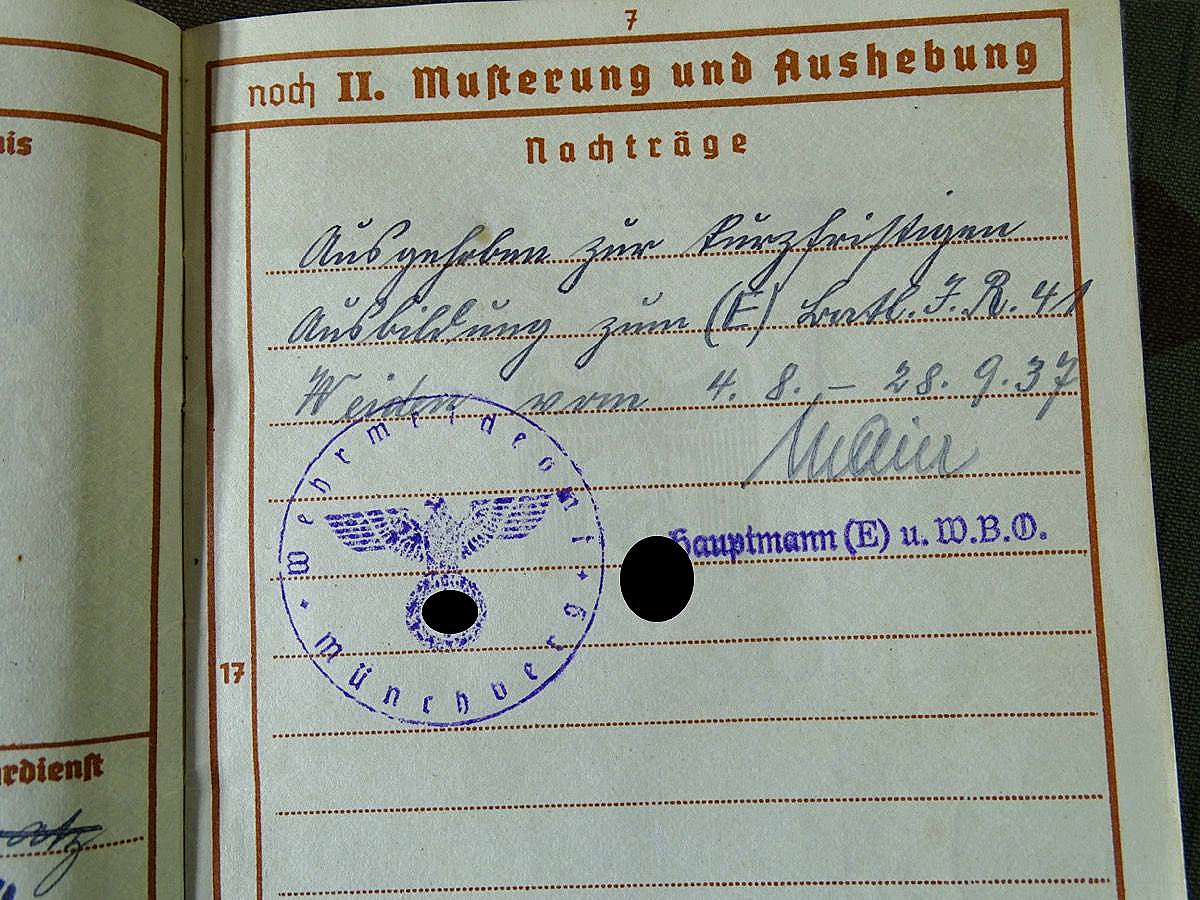 7
noch II. Musterung und Aushebung
Nachträge
Ausgehoben zur kurzfristigen
Ausbildung zum (E) Batl. I.R. 41
Weiden vom 4. 8. – 28. 9. 37
Hauptmann (E) u. W.B.O.
Wehrmeldeamt
Münchberg
17
nis
rdienst